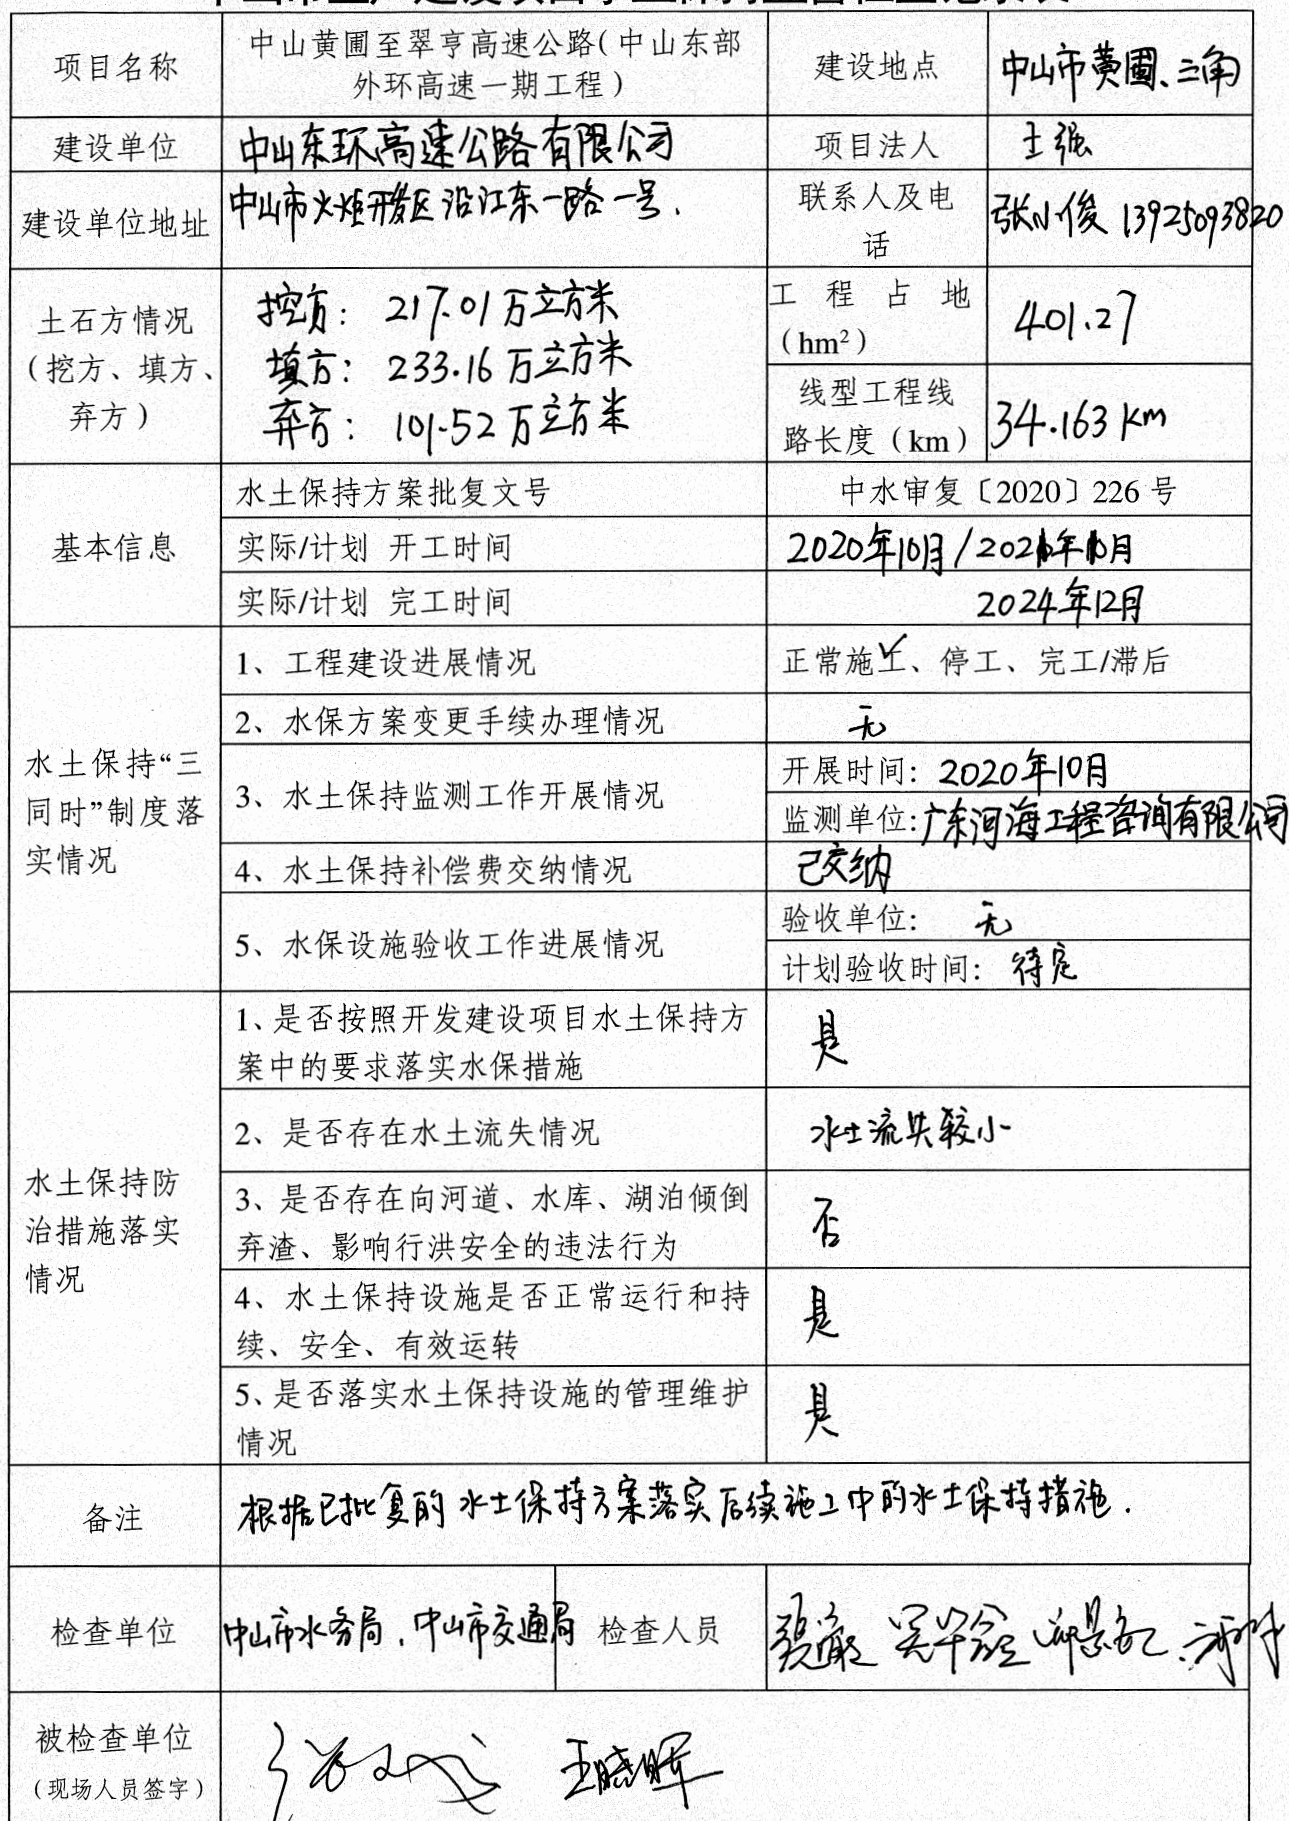 项目名称
中山黄圃至翠亨高速公路(中山东部
外环高速一期工程)
建设地点
中山市黄圃、三角
建设单位
中山东环高速公路有限公司
项目法人
王强
建设单位地址
中山市火炬开发区沿江东一路一号.
联系人及电
话
张小俊 13925093820
土石方情况
(挖方、填方、
弃方)
挖方: 217.01万立方米
填方: 233.16万立方米
弃方: 101.52万立方米
工程占地
(hm²)
401.27
线型工程线
路长度(km)
34.163 km
基本信息
水土保持方案批复文号
中水审复〔2020〕226号
实际/计划 开工时间
2020年10月/
实际/计划 完工时间
2024年12月
水土保持“三
同时”制度落
实情况
1、工程建设进展情况
正常施工✓、停工、完工/滞后
2、水保方案变更手续办理情况
无
3、水土保持监测工作开展情况
开展时间: 2020年10月
监测单位:广东河海工程咨询有限公司
4、水土保持补偿费交纳情况
已交纳
5、水保设施验收工作进展情况
验收单位: 无
计划验收时间: 待定
水土保持防
治措施落实
情况
1、是否按照开发建设项目水土保持方
案中的要求落实水保措施
是
2、是否存在水土流失情况
水土流失较小
3、是否存在向河道、水库、湖泊倾倒
弃渣、影响行洪安全的违法行为
否
4、水土保持设施是否正常运行和持
续、安全、有效运转
是
5、是否落实水土保持设施的管理维护
情况
是
备注
根据已批复的水土保持方案落实后续施工中的水土保持措施.
检查单位
中山市水务局、中山市交通局
检查人员
被检查单位
(现场人员签字)
王晓晖